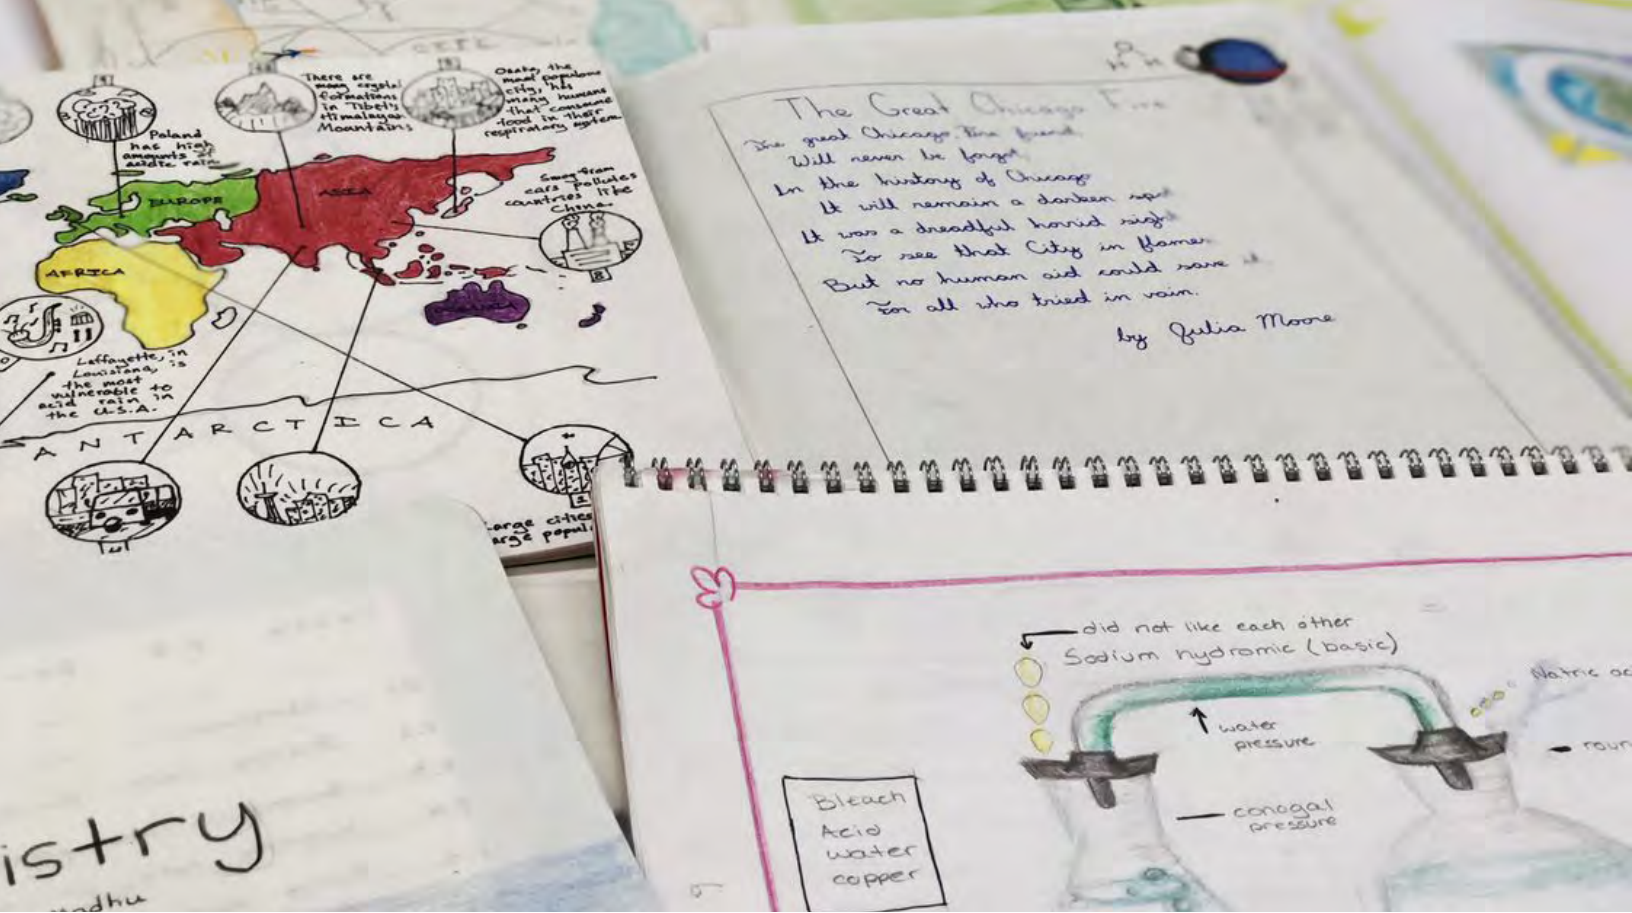 There are
many crystal
formations
in Tibet's
Himalayan
Mountains
Osaka, the
most populous
city, has
many humans
that consume
food in their
respiratory system.
Poland
has high
amounts of
acidic rain
Smog from
cars pollutes
countries like
China.
8
EUROPE
ASIA
AFRICA
Laffayette, in
Louisiana, is
the most
vulnerable to
acid rain in
the U.S.A.
ANTARCTICA
1
arge cities
arge popul
The Great Chicago Fire
The great Chicago Fire friend
Will never be forgot
In the history of Chicago
It will remain a darken spot
It was a dreadful horrid sight
To see that City in flames
But no human aid could save it
For all who tried in vain.
by Julia Moore
did not like each other
Sodium hydromic (basic)
Natric ac
water
pressure
roun
conogal
pressure
Bleach
Acid
water
copper
istry
ndhu